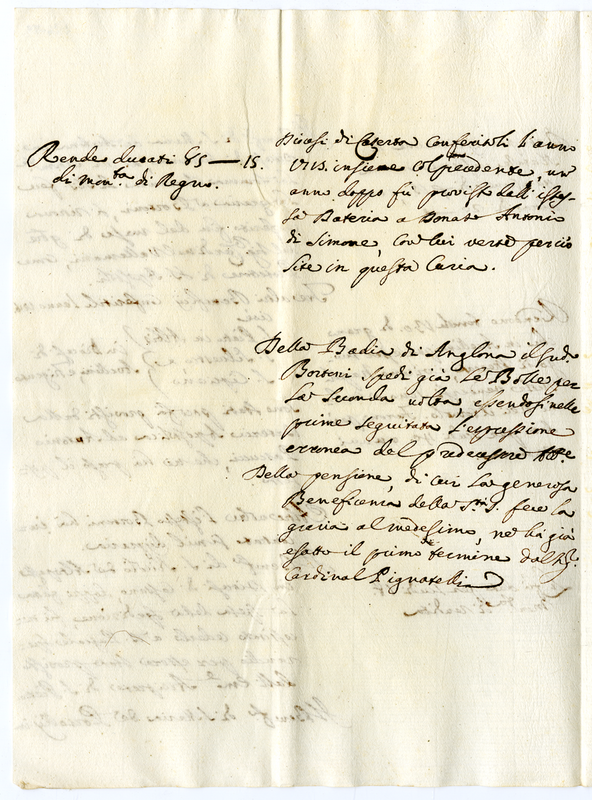 Rende ducati 85 — 15.
di mon.ta di Regno.
Diocesi di Caserta conferitoli l'anno
1713. insieme col precedente, un
anno doppo fù provista dall'istes-
sa Dateria a Donato Antonio
di Simone, con lui verte perciò
lite in questa Curia.
Della Badia di Anglona il sud.o
Bortoni spedì già le Bolle per
la seconda volta, essendosi nelle
prime seguitata l'espressione
erronea del predecessore
Della pensione, di cui la generosa
Beneficenza della S.tà S. fece la
grazia al medesimo, ne hà già
esatto il primo termine dal
Cardinal Pignatelli